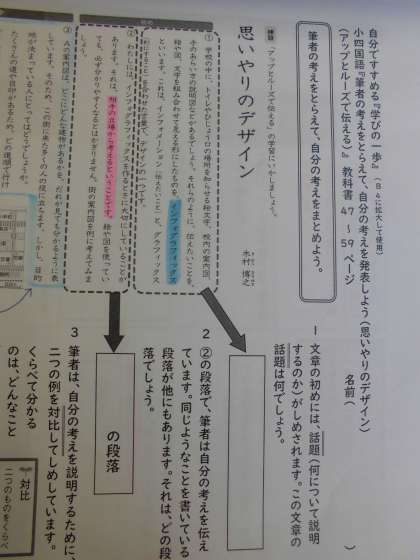 自分ですすめる『学びの一歩』（Ｂ４に拡大して使用）
小四国語『筆者の考えをとらえて、自分の考えを発表しよう（思いやりのデザイン）
（アップとルーズで伝える）』 教科書 47 〜 59 ページ
名前（　　　）
筆者の考えをとらえて、自分の考えをまとめよう。
練習 「アップとルーズで伝える」の学習にいかしましょう。
思いやりのデザイン
木村 博之
初め
① 学校の中に、トイレやひじょう口の場所を知らせる絵文字、校内の案内図、
手のあらい方の説明図などがあるでしょう。それらのように、伝えたいことを、
絵や図、文字を組み合わせて見える形にしたものを、インフォグラフィックス
といいます。これは、インフォメーション（伝えたいこと）と、グラフィックス
を合わせた言葉で、デザインの一つです。
② わたしには、インフォグラフィックスを作るときに大切にしていることが
あります。それは、相手の立場から考えるということです。絵や図を使ってい
ても、必ず分かりやすくなるとはかぎりません。街の案内図を例に考えてみま
しょう。
③ Ａの案内図は、どこにどんな建物があるかを、だれが見ても分かるように表
しています。そのため、この街に来た多くの人の役に立ちます。しかし、目的
地が決まっている人にとってはどうでしょうか。
たくさんの道や目印があるため、どの道順で行け
１ 文章の初めには、話題（何について説明
するのか）がしめされます。この文章の
話題は何でしょう。
２ ②の段落で、筆者は自分の考えを伝え
ています。同じようなことを書いている
段落が他にもあります。それは、どの段
落でしょう。
の段落
３ 筆者は、自分の考えを説明するために、
二つの例を対比してしめしています。
くらべて分かる
のは、どんなこと
対比
二つのものをくらべ